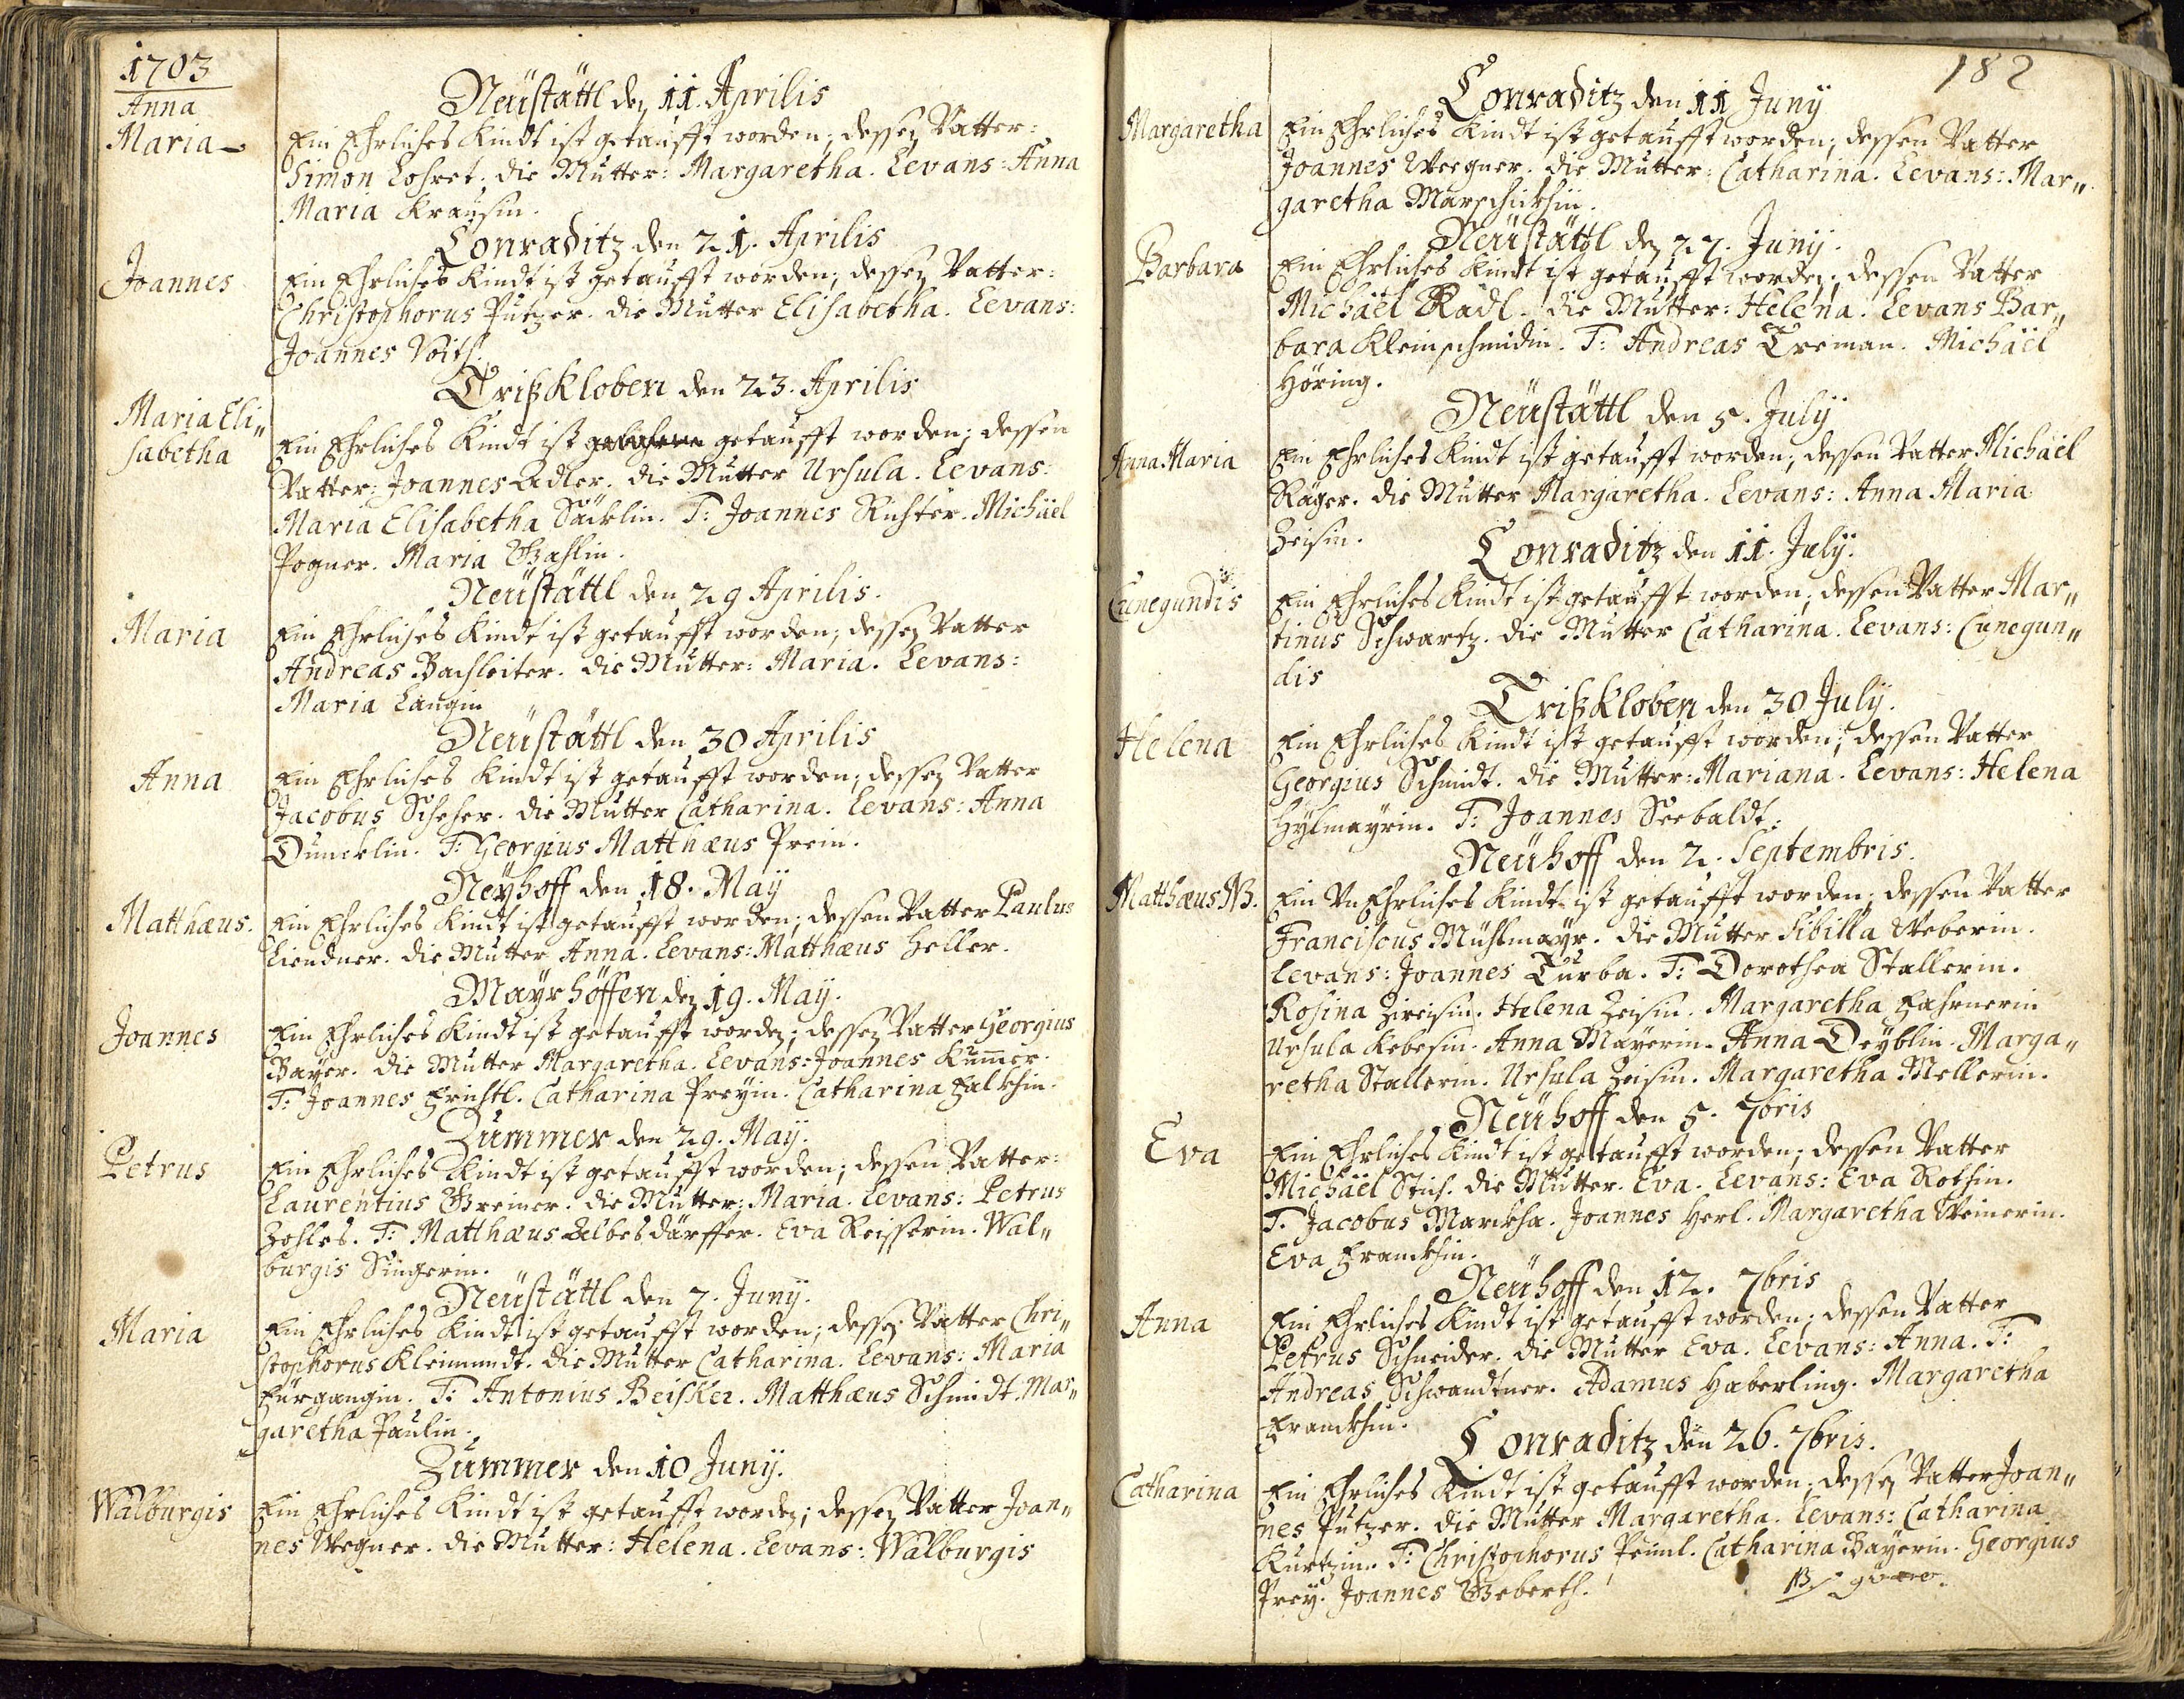 1703
Anna
Maria
Neüstättl den 11. Aprilis
Ein Ehrliches Kindt ist getaufft worden; dessen Vatter:
Simon Lohret. die Mutter: Margaretha. Levans: Anna
Maria Krausin.
Conraditz den 21. Aprilis
Joannes
Ein Ehrliches Kindt ist getaufft worden; dessen Vatter:
Christophorus Putzer. die Mutter Elisabetha. Levans:
Joannes Voith.
Trißkloben den 23. Aprilis
Maria Eli„
sabetha
Ein Ehrliches Kindt ist getaufft worden; dessen
Vatter: Joannes Adler. die Mutter Ursula. Levans:
Maria Elisabetha Säcklin. T: Joannes Richter. Michäel
Pogner. Maria
Neüstättl den 29 Aprilis.
Maria
Ein Ehrliches Kindt ist getaufft worden; dessen Vatter
Andreas Bachleiter. die Mutter: Maria. Levans:
Maria Langin
Neüstättl den 30 Aprilis
Anna
Ein Ehrliches Kindt ist getaufft worden; dessen Vatter
Jacobus Scheher. die Mutter Catharina. Levans: Anna
Duncklin. T: Georgius Matthæus Prein.
Neyhoff den 18. Maÿ
Matthæus.
Ein Ehrliches Kindt ist getaufft worden; dessen Vatter Paulus
Liendner. die Mutter Anna. Levans: Matthæus Heller.
Maÿrhöffen den 19. Maÿ.
Joannes
Ein Ehrliches Kindt ist getaufft worden; dessen Vatter Georgius
Baÿer. die Mutter Margaretha. Levans: Joannes Kum̅er.
T: Joannes Frichtl. Catharina Preyin. Catharina Falckhin.
Zummer den 29. Maÿ.
Petrus
Ein Ehrliches Kindt ist getaufft worden; dessen Vatter:
Laurentius Greiner. die Mutter: Maria. Levans: Petrus
Zohles. T: Matthæus Albesdärffer. Eva Reisserin. Wal„
burgis Singerin.
Neüstättl den 7. Junÿ.
Maria
Ein Ehrliches Kindt ist getaufft worden; dessen Vatter Chri„
stophorus Kleinmundt. die Mutter Catharina. Levans: Maria
Fürgangin. T: Antonius Beisker. Matthæus Schmidt. Mar„
garetha Paulin.
Zummer den 10 Junÿ.
Walburgis
Ein Ehrliches Kindt ist getaufft worden; dessen Vatter Joan„
nes Wegner. die Mutter: Helena. Levans: Walburgis
182
Conraditz den 11 Junÿ
Margaretha
Ein Ehrliches Kindt ist getaufft worden; dessen Vatter
Joannes Weegner. die Mutter: Catharina. Levans: Mar„
garetha Marschickhin.
Neüstättl den 27. Junÿ.
Barbara
Ein Ehrliches Kindt ist getaufft worden; dessen Vatter
Michäel Radl. die Mutter: Helena. Levans Bar„
bara Kleinschmidin. T: Andreas Treman. Michäel
Höring.
Neüstättl den 5. Julÿ
Anna Maria
Ein Ehrliches Kindt ist getaufft worden; dessen Vatter Michäel
Räger. die Mutter Margaretha. Levans: Anna Maria
Zeisin.
Conraditz den 11. Julÿ.
Cunegundis
Ein Ehrliches Kindt ist getaufft worden; dessen Vatter Mar„
tinus Schwartz. die Mutter Catharina. Levans: Cunegun„
dis
Trißkloben den 30 Julÿ.
Helena
Ein Ehrliches Kindt ist getaufft worden; dessen Vatter
Georgius Schmidt. die Mutter: Mariana. Levans: Helena
Hÿlmaÿrin. T: Joannes Seebaldt.
Neuhoff den 2. Septembris.
Matthæus NB.
Ein Vn Ehrliches Kindt ist getaufft worden; dessen Vatter
Franciscus Mühlmaÿr. die Mutter Sibilla Weberin.
Levans: Joannes Turba. T: Dorothea Stallerin.
Rosina Zireisin. Helena Zeisin. Margaretha Fahrnerin
Ursula Kebesin. Anna Maÿerin. Anna Deÿblin. Marga„
retha Stallerin. Ursula Zeisin. Margaretha Mellerin.
Neuhoff den 5. 7bris
Eva
Ein Ehrliches Kindt ist getaufft worden; dessen Vatter
Michäel Stich. die Mutter. Eva. Levans: Eva Rothin.
T. Jacobus Marckha. Joannes Herl. Margaretha Weinerin.
Eva Franckhin.
Neuhoff den 12. 7bris
Anna
Ein Ehrliches Kindt ist getaufft worden; dessen Vatter
Petrus Schneider. die Mutter Eva. Levans: Anna. T:
Andreas Schwandtner. Adamus Haberling. Margaretha
Franckhin.
Conraditz den 26. 7bris.
Catharina
Ein Ehrliches Kindt ist getaufft worden; dessen Vatter Joan„
nes Putzer. die Mutter Margaretha. Levans: Catharina
Kurtzin. T: Christophorus Peinl. Catharina Baÿerin. Georgius
Preÿ. Joannes Geberth.